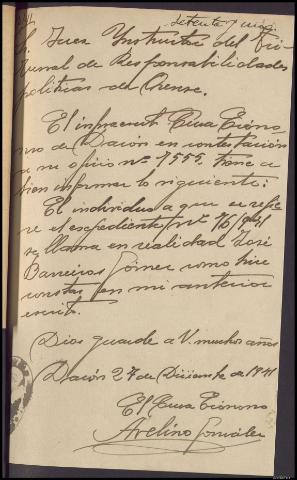 setenta y una
Sr. Juez Instructor del Tri-
bunal de Responsabilidades
politicas de Orense.
El infrascrito Cura Ecóno-
mo de Dacón en contestación
a su oficio nº 7555, tiene a
bien informar lo siguiente:
El individuo a que se refie-
re el expediente nº 76/
se llama en realidad José
Barreiros Gómez como hice
constar en mi anterior
escrito.
Dios guarde a V. muchos años
Dacón 27 de Diciembre de 1941
El Cura Ecónomo
Avelino González